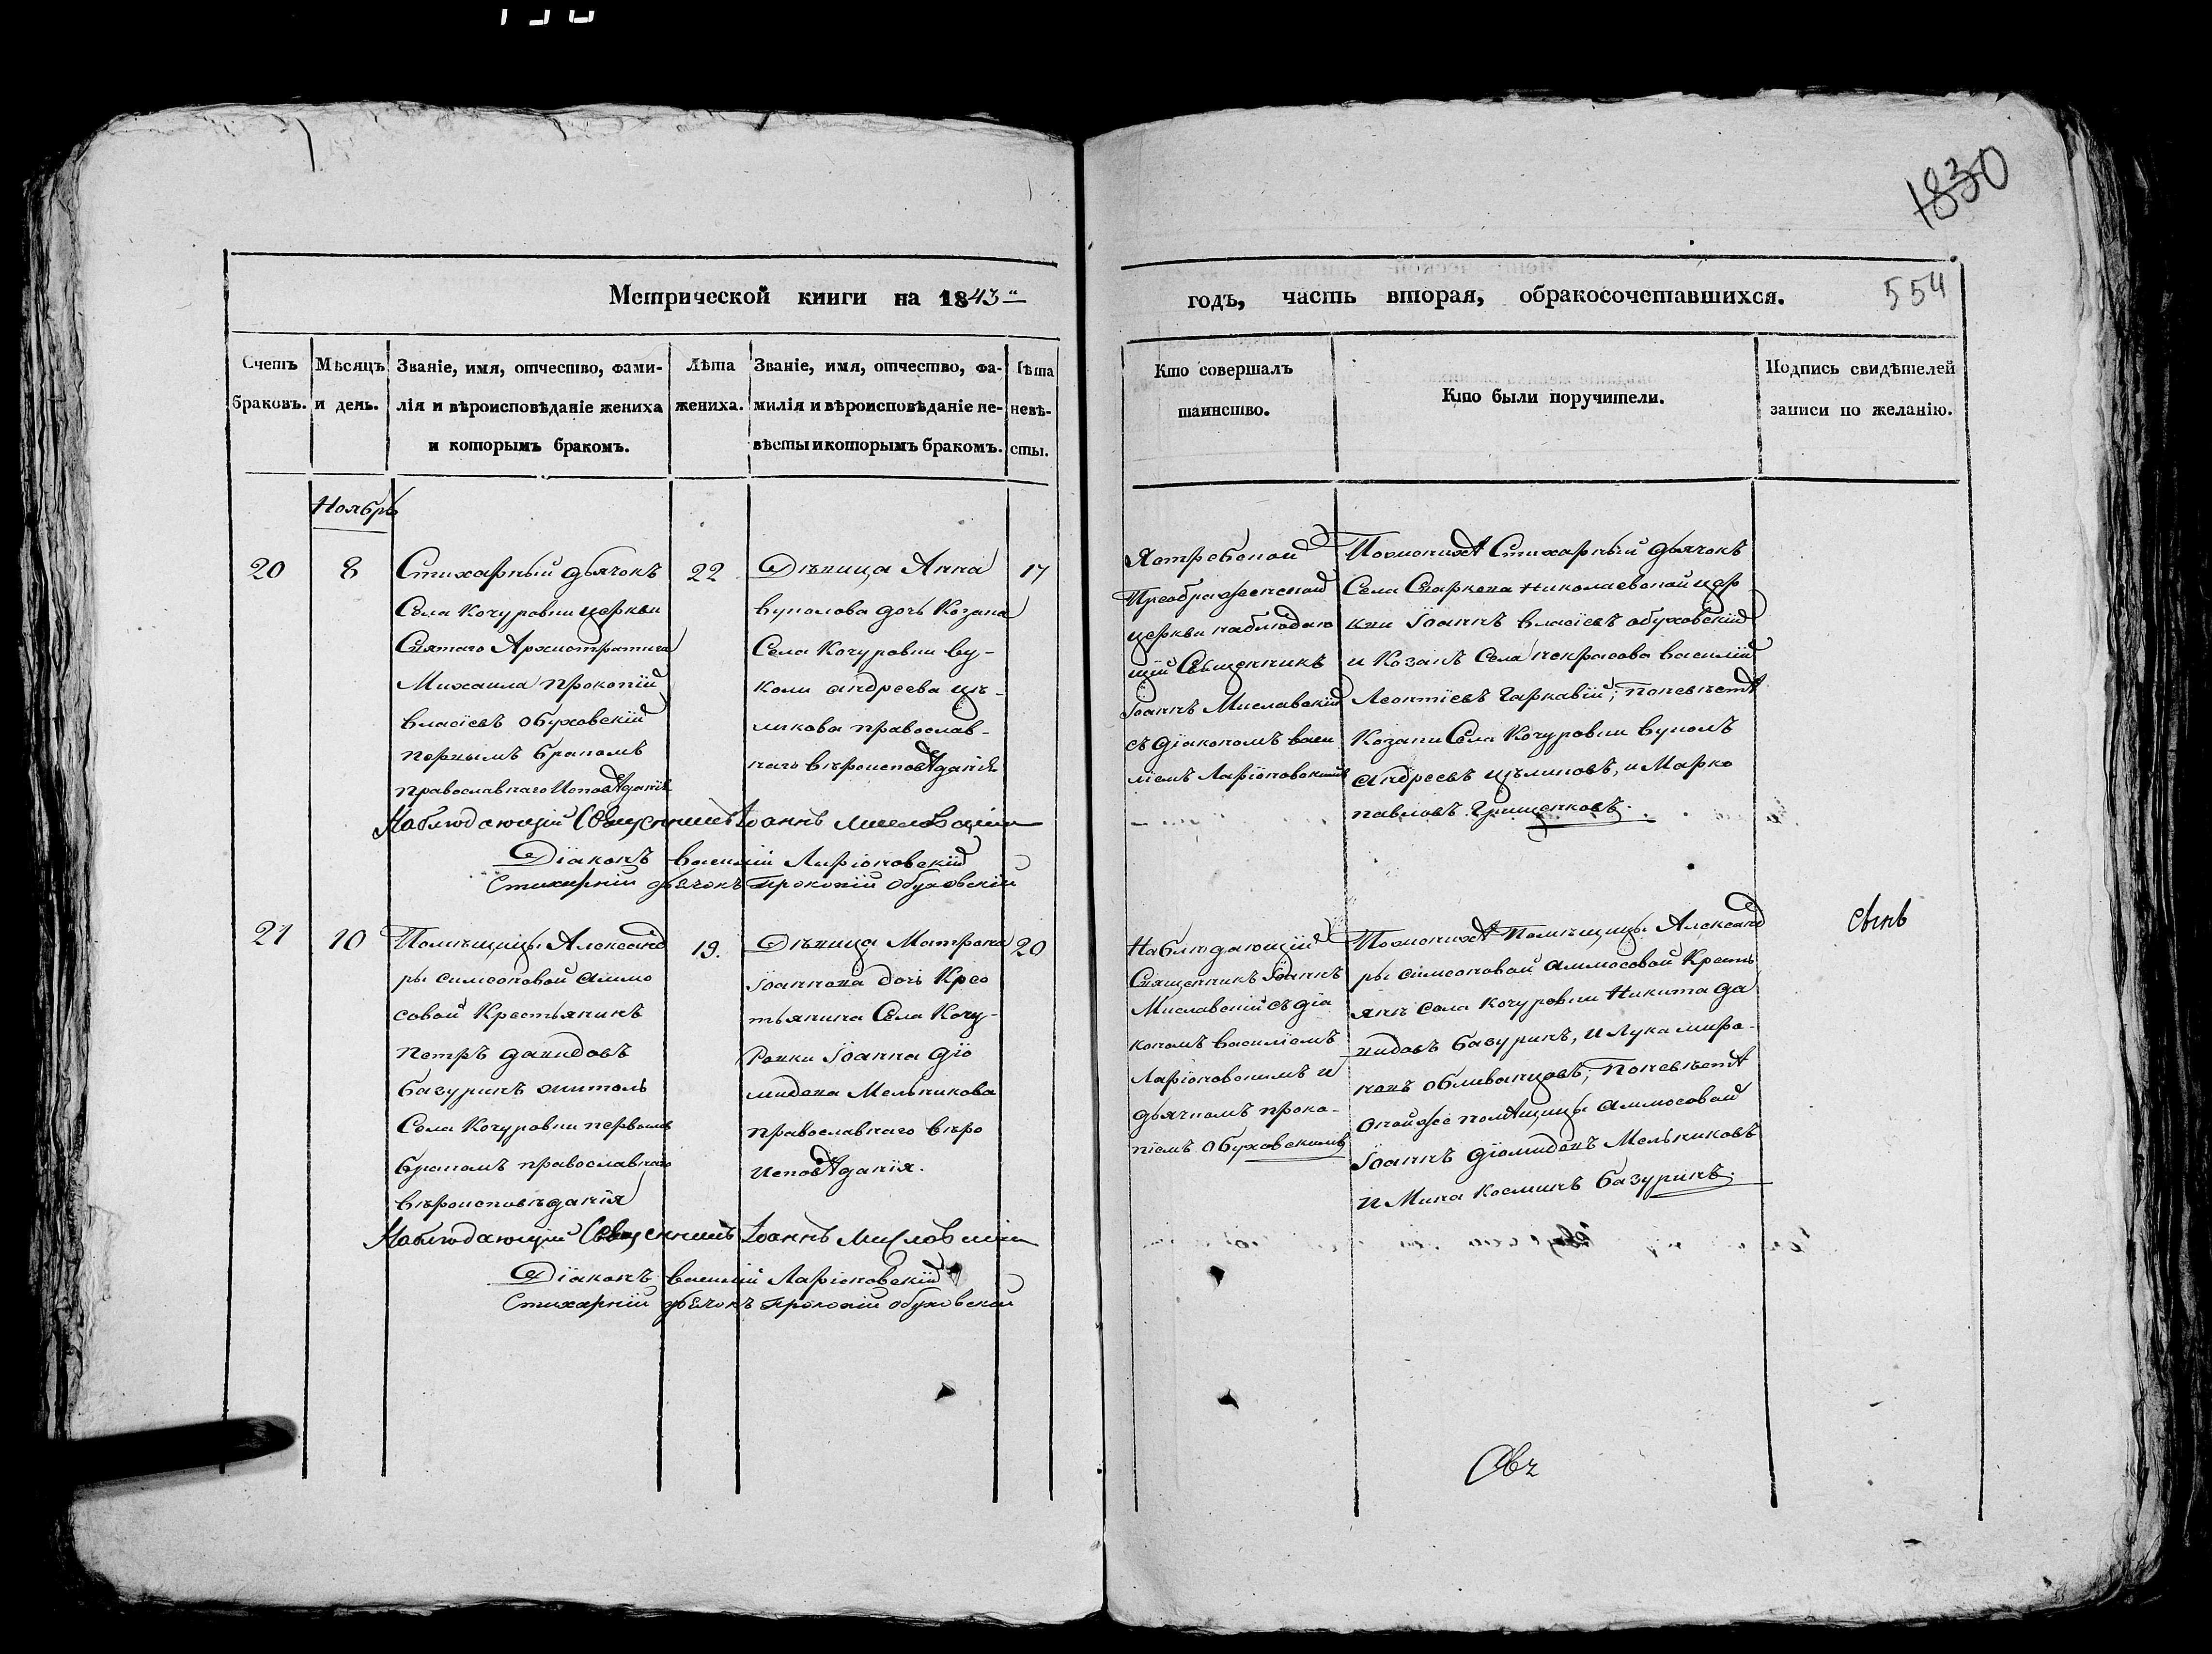 1830
554
Метрической книги на 1843
годъ, часть вторая, обракосочетавшихся.
Счетъ браковъ.
Мѣсяцъ и день.
Званіе, имя, отчество, фами-
лія и вѣроисповѣданіе жениха
и которымъ бракомъ.
Лѣта
жениха.
Званіе, имя, отчество, фа-
милія и вѣроисповѣданіе не-
вѣсты и которымъ бракомъ.
Лѣта
невѣ-
сты.
Кто совершалъ
таинство.
Кто были поручители.
Подпись свидѣтелей
записи по желанію.
Ноябрь
20
8
Стихарный дьячокъ
Села Кочуровки церкви
Святаго Архистратига
Михаила Прокопій
Власіевъ Обуховскій
первымъ бракомъ
православнаго Исповѣданія
22
Дѣвица Анна
Вуколова дочь Козака
Села Кочуровки Ву-
колы Андреева Цѣ-
ликова православ-
наго вѣроисповѣданія
17
Ястребской
Преображенской
церкви наблюдаю
щій Священникъ
Іоаннъ Миславскій
съ діакономъ Васи
ліемъ Ларіоновскимъ
По женихѣ Стихарный дьячокъ
Села Николаевской цер
кви Іоаннъ Власіевъ Обуховскій
и Козакъ Села Некрасова Василій
Леонтіевъ Гаркавій; по невѣстѣ
Козаки Села Кочуровки Вуколъ
Андреевъ Цѣликовъ, и Марко
Павловъ Грищенковъ.
Наблюдающій Священникъ Іоаннъ Миславскій
Діаконъ Василій Ларіоновскій
Стихарній дьячокъ Прокопій Обуховскій
21
10
Помѣщицы Александ
ры Симеоновой Аммо
совой Крестьянинъ
Петръ Давидовъ
Базуринъ житель
Села Кочуровки первымъ
бракомъ православнаго
вѣроисповѣданія
19.
Дѣвица Матрона
Іоаннова дочь Крес
тьянина Села Кочу-
ровки Іоанна Діо
мидова Мельникова
православнаго вѣро
исповѣданія.
20
Наблюдающій
Священникъ Іоаннъ
Миславскій съ діа
кономъ Василіемъ
Ларіоновскимъ и
дьячкомъ Проко-
піемъ Обуховскимъ
По женихѣ Помѣщицы Александ
ры Симеоновой Аммосовой Кресть
яне села Кочуровки Никита Да
видовъ Базуринъ, и Лука Миро-
новъ Обливанцовъ; по невѣстѣ
оной же помѣщицы Аммосовой
Іоаннъ Діомидовъ Мельниковъ
и Мина Косминъ Базуринъ.
Наблюдающій Священникъ Іоаннъ Миславскій
Діаконъ Василій Ларіоновскій
Стихарній дьячокъ Прокопій Обуховскій